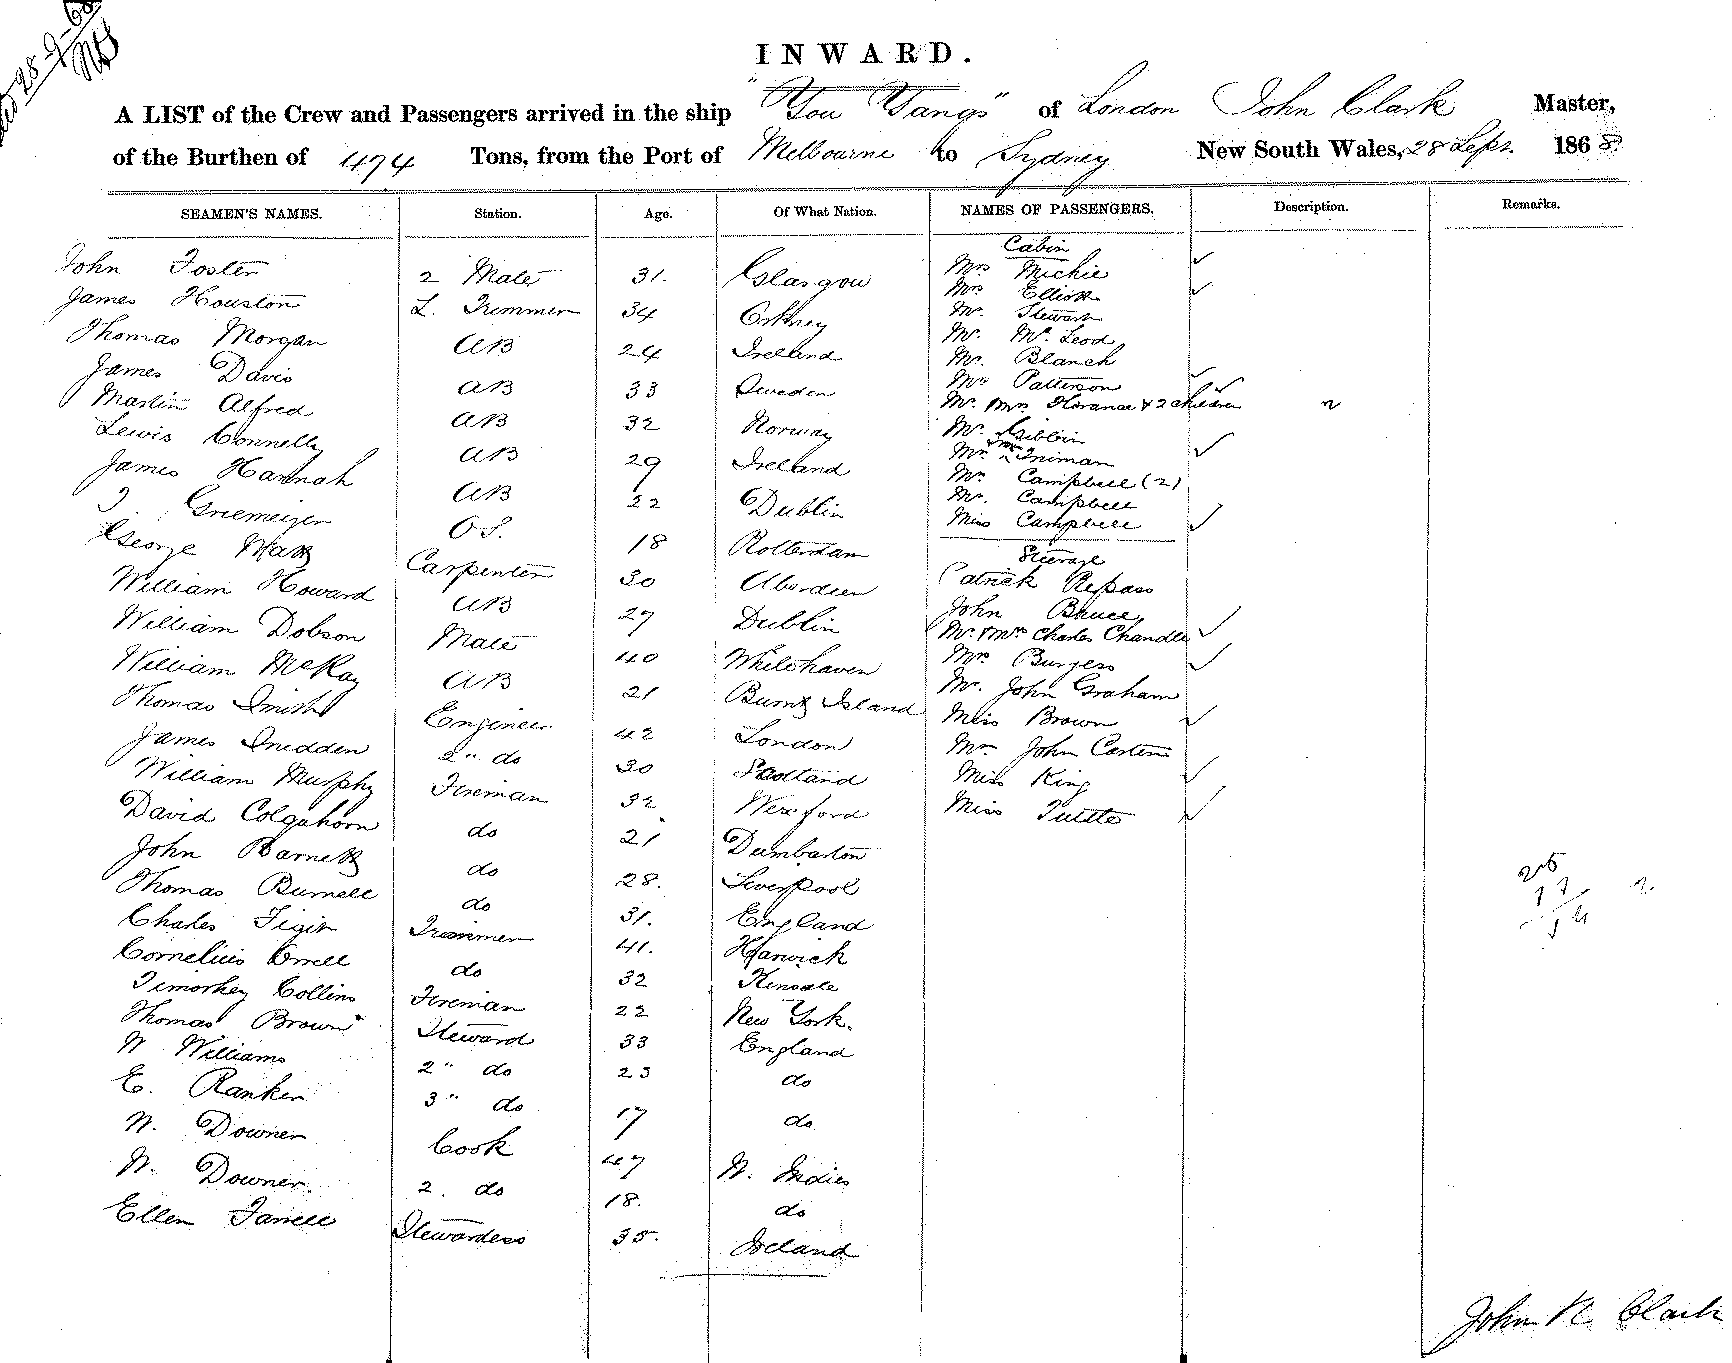 28-9-68
INWARD.
A LIST of the Crew and Passengers arrived in the ship "You Yangs" of London John Clark Master,
of the Burthen of 474 Tons, from the Port of Melbourne to Sydney New South Wales, 28 Sept 1868
SEAMEN'S NAMES. Station. Age. Of What Nation. NAMES OF PASSENGERS. Description. Remarks.
John Foster 2 Mate 31. Glasgow
James Houston L. Tremmer 34 Orkney
Thomas Morgan AB 24 Ireland
James Davis AB 33 Sweden
Martin Alfred AB 32 Norway
Lewis Connelly AB 29 Ireland
James Hannah AB 22 Dublin
OS. 18 Rotterdam
George Carpenter 30 Aberdeen
William Howard AB 29 Dublin
William Dobson Mate 40 Whitehaven
William McKay AB 21 Burnt Island
Thomas Smith Engineer 42 London
James Snedden 2" do 30 Scotland
William Murphy Fireman 32 Wexford
David Colquhorn do 21 Dumbarton
John Barnett do 28. Liverpool
Thomas Burnell do 31. England
Charles Trimmer 41. Harwick
Cornelius do 32 Kinsale
Timothey Collins Fireman 22 New York.
Thomas Brown Steward 33 England
W Williams 2" do 23 do
E. Ranken 3" do 17 do
W. Downer Cook 47 W. Indies
W. Downer. 2. do 18. do
Ellen Stewardess 35. Ireland
Cabin
Mrs Michie
Mrs Elliott
Mr. Stewart
Mr. Mc Leod
Mr. Blanch
Mrs Patterson
Mr. Mrs Florance & 2 children
Mr. Gibbin
Campbell (2)
Mr. Campbell
Miss Campbell
Steerage
Patrick
John Bruce
Mr. & Mrs Charles Chandler
Mrs Burgess
Mr. John Graham
Miss Brown
Mr John Carten
Miss King
Miss Tuttle
John Clark